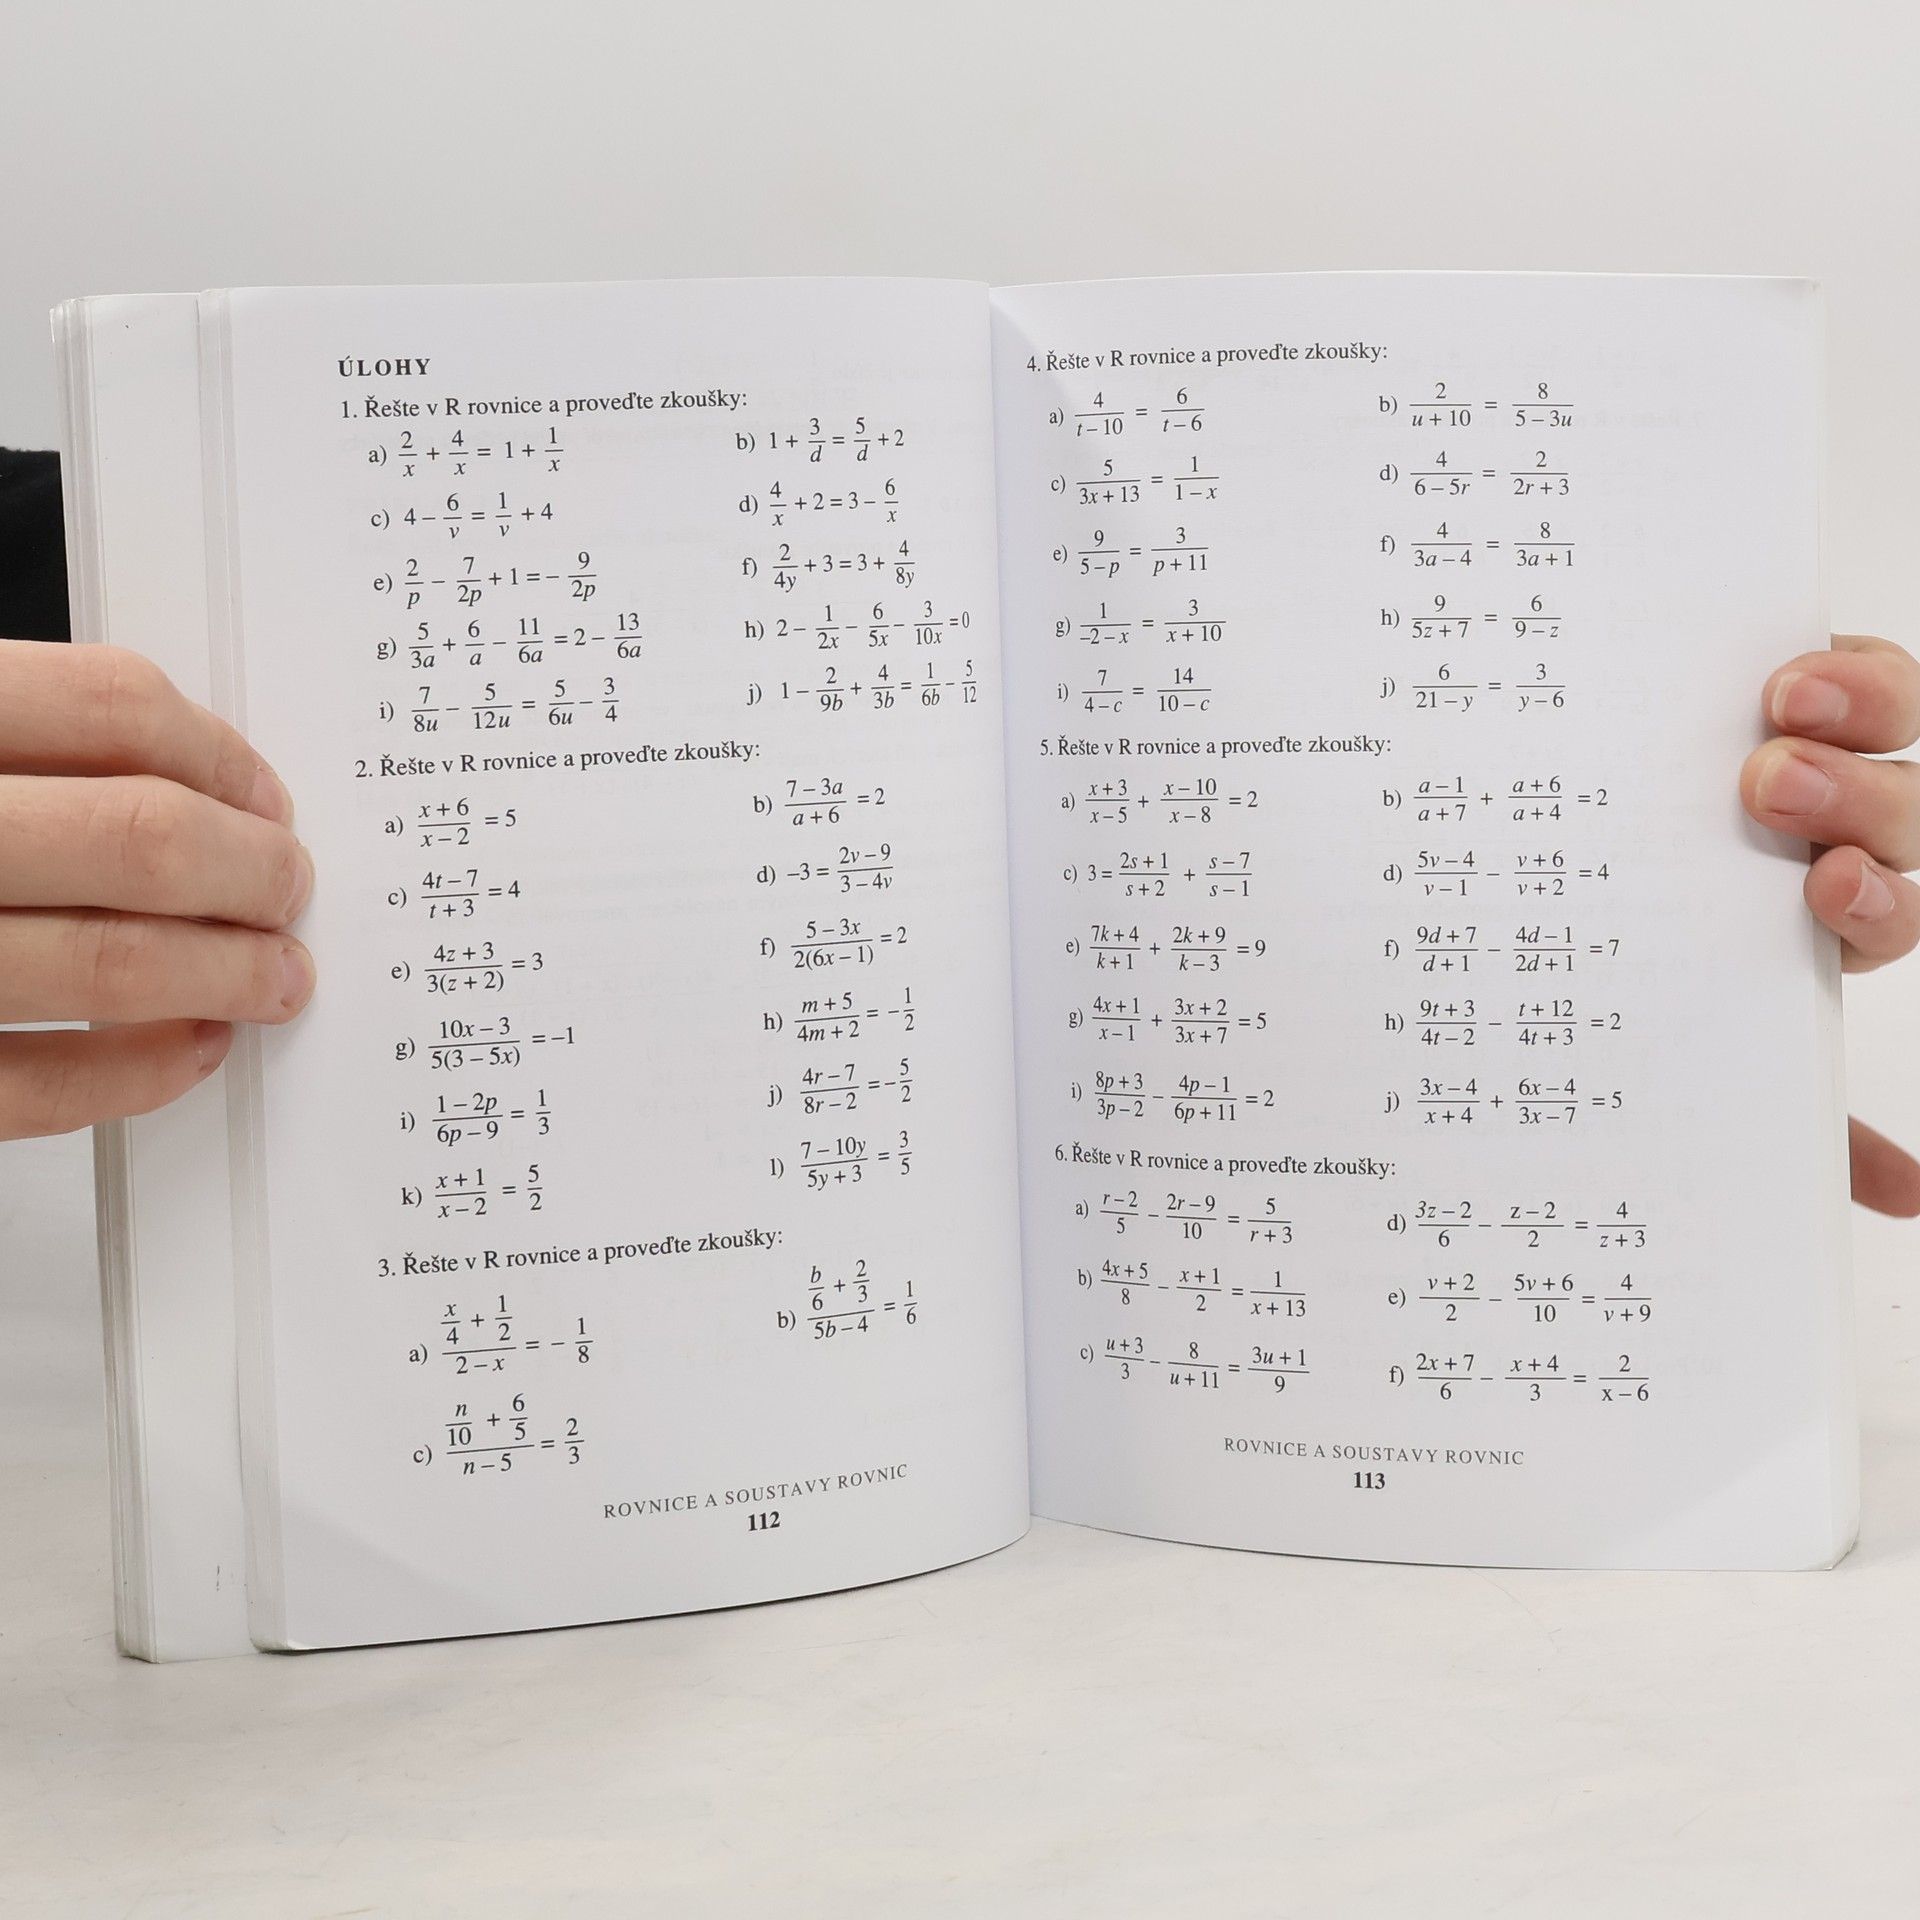 ÚLOHY
1. Řešte v R rovnice a proveďte zkoušky:
a) 2/x + 4/x = 1 + 1/x
b) 1 + 3/d = 5/d + 2
c) 4 – 6/v = 1/v + 4
d) 4/x + 2 = 3 – 6/x
e) 2/p – 7/2p + 1 = – 9/2p
f) 2/4y + 3 = 3 + 4/8y
g) 5/3a + 6/a – 11/6a = 2 – 13/6a
h) 2 – 1/2x – 6/5x – 3/10x = 0
i) 7/8u – 5/12u = 5/6u – 3/4
j) 1 – 2/9b + 4/3b = 1/6b – 5/12
2. Řešte v R rovnice a proveďte zkoušky:
a) (x + 6)/(x – 2) = 5
b) (7 – 3a)/(a + 6) = 2
c) (4t – 7)/(t + 3) = 4
d) –3 = (2v – 9)/(3 – 4v)
e) (4z + 3)/(3(z + 2)) = 3
f) (5 – 3x)/(2(6x – 1)) = 2
g) (10x – 3)/(5(3 – 5x)) = –1
h) (m + 5)/(4m + 2) = – 1/2
i) (1 – 2p)/(6p – 9) = 1/3
j) (4r – 7)/(8r – 2) = – 5/2
k) (x + 1)/(x – 2) = 5/2
l) (7 – 10y)/(5y + 3) = 3/5
3. Řešte v R rovnice a proveďte zkoušky:
a) (x/4 + 1/2)/(2 – x) = – 1/8
b) (b/6 + 2/3)/(5b – 4) = 1/6
c) (n/10 + 6/5)/(n – 5) = 2/3
ROVNICE A SOUSTAVY ROVNIC
112
4. Řešte v R rovnice a proveďte zkoušky:
a) 4/(t – 10) = 6/(t – 6)
b) 2/(u + 10) = 8/(5 – 3u)
c) 5/(3x + 13) = 1/(1 – x)
d) 4/(6 – 5r) = 2/(2r + 3)
e) 9/(5 – p) = 3/(p + 11)
f) 4/(3a – 4) = 8/(3a + 1)
g) 1/(–2 – x) = 3/(x + 10)
h) 9/(5z + 7) = 6/(9 – z)
i) 7/(4 – c) = 14/(10 – c)
j) 6/(21 – y) = 3/(y – 6)
5. Řešte v R rovnice a proveďte zkoušky:
a) (x + 3)/(x – 5) + (x – 10)/(x – 8) = 2
b) (a – 1)/(a + 7) + (a + 6)/(a + 4) = 2
c) 3 = (2s + 1)/(s + 2) + (s – 7)/(s – 1)
d) (5v – 4)/(v – 1) – (v + 6)/(v + 2) = 4
e) (7k + 4)/(k + 1) + (2k + 9)/(k – 3) = 9
f) (9d + 7)/(d + 1) – (4d – 1)/(2d + 1) = 7
g) (4x + 1)/(x – 1) + (3x + 2)/(3x + 7) = 5
h) (9t + 3)/(4t – 2) – (t + 12)/(4t + 3) = 2
i) (8p + 3)/(3p – 2) – (4p – 1)/(6p + 11) = 2
j) (3x – 4)/(x + 4) + (6x – 4)/(3x – 7) = 5
6. Řešte v R rovnice a proveďte zkoušky:
a) (r – 2)/5 – (2r – 9)/10 = 5/(r + 3)
d) (3z – 2)/6 – (z – 2)/2 = 4/(z + 3)
b) (4x + 5)/8 – (x + 1)/2 = 1/(x + 13)
e) (v + 2)/2 – (5v + 6)/10 = 4/(v + 9)
c) (u + 3)/3 – 8/(u + 11) = (3u + 1)/9
f) (2x + 7)/6 – (x + 4)/3 = 2/(x – 6)
ROVNICE A SOUSTAVY ROVNIC
113